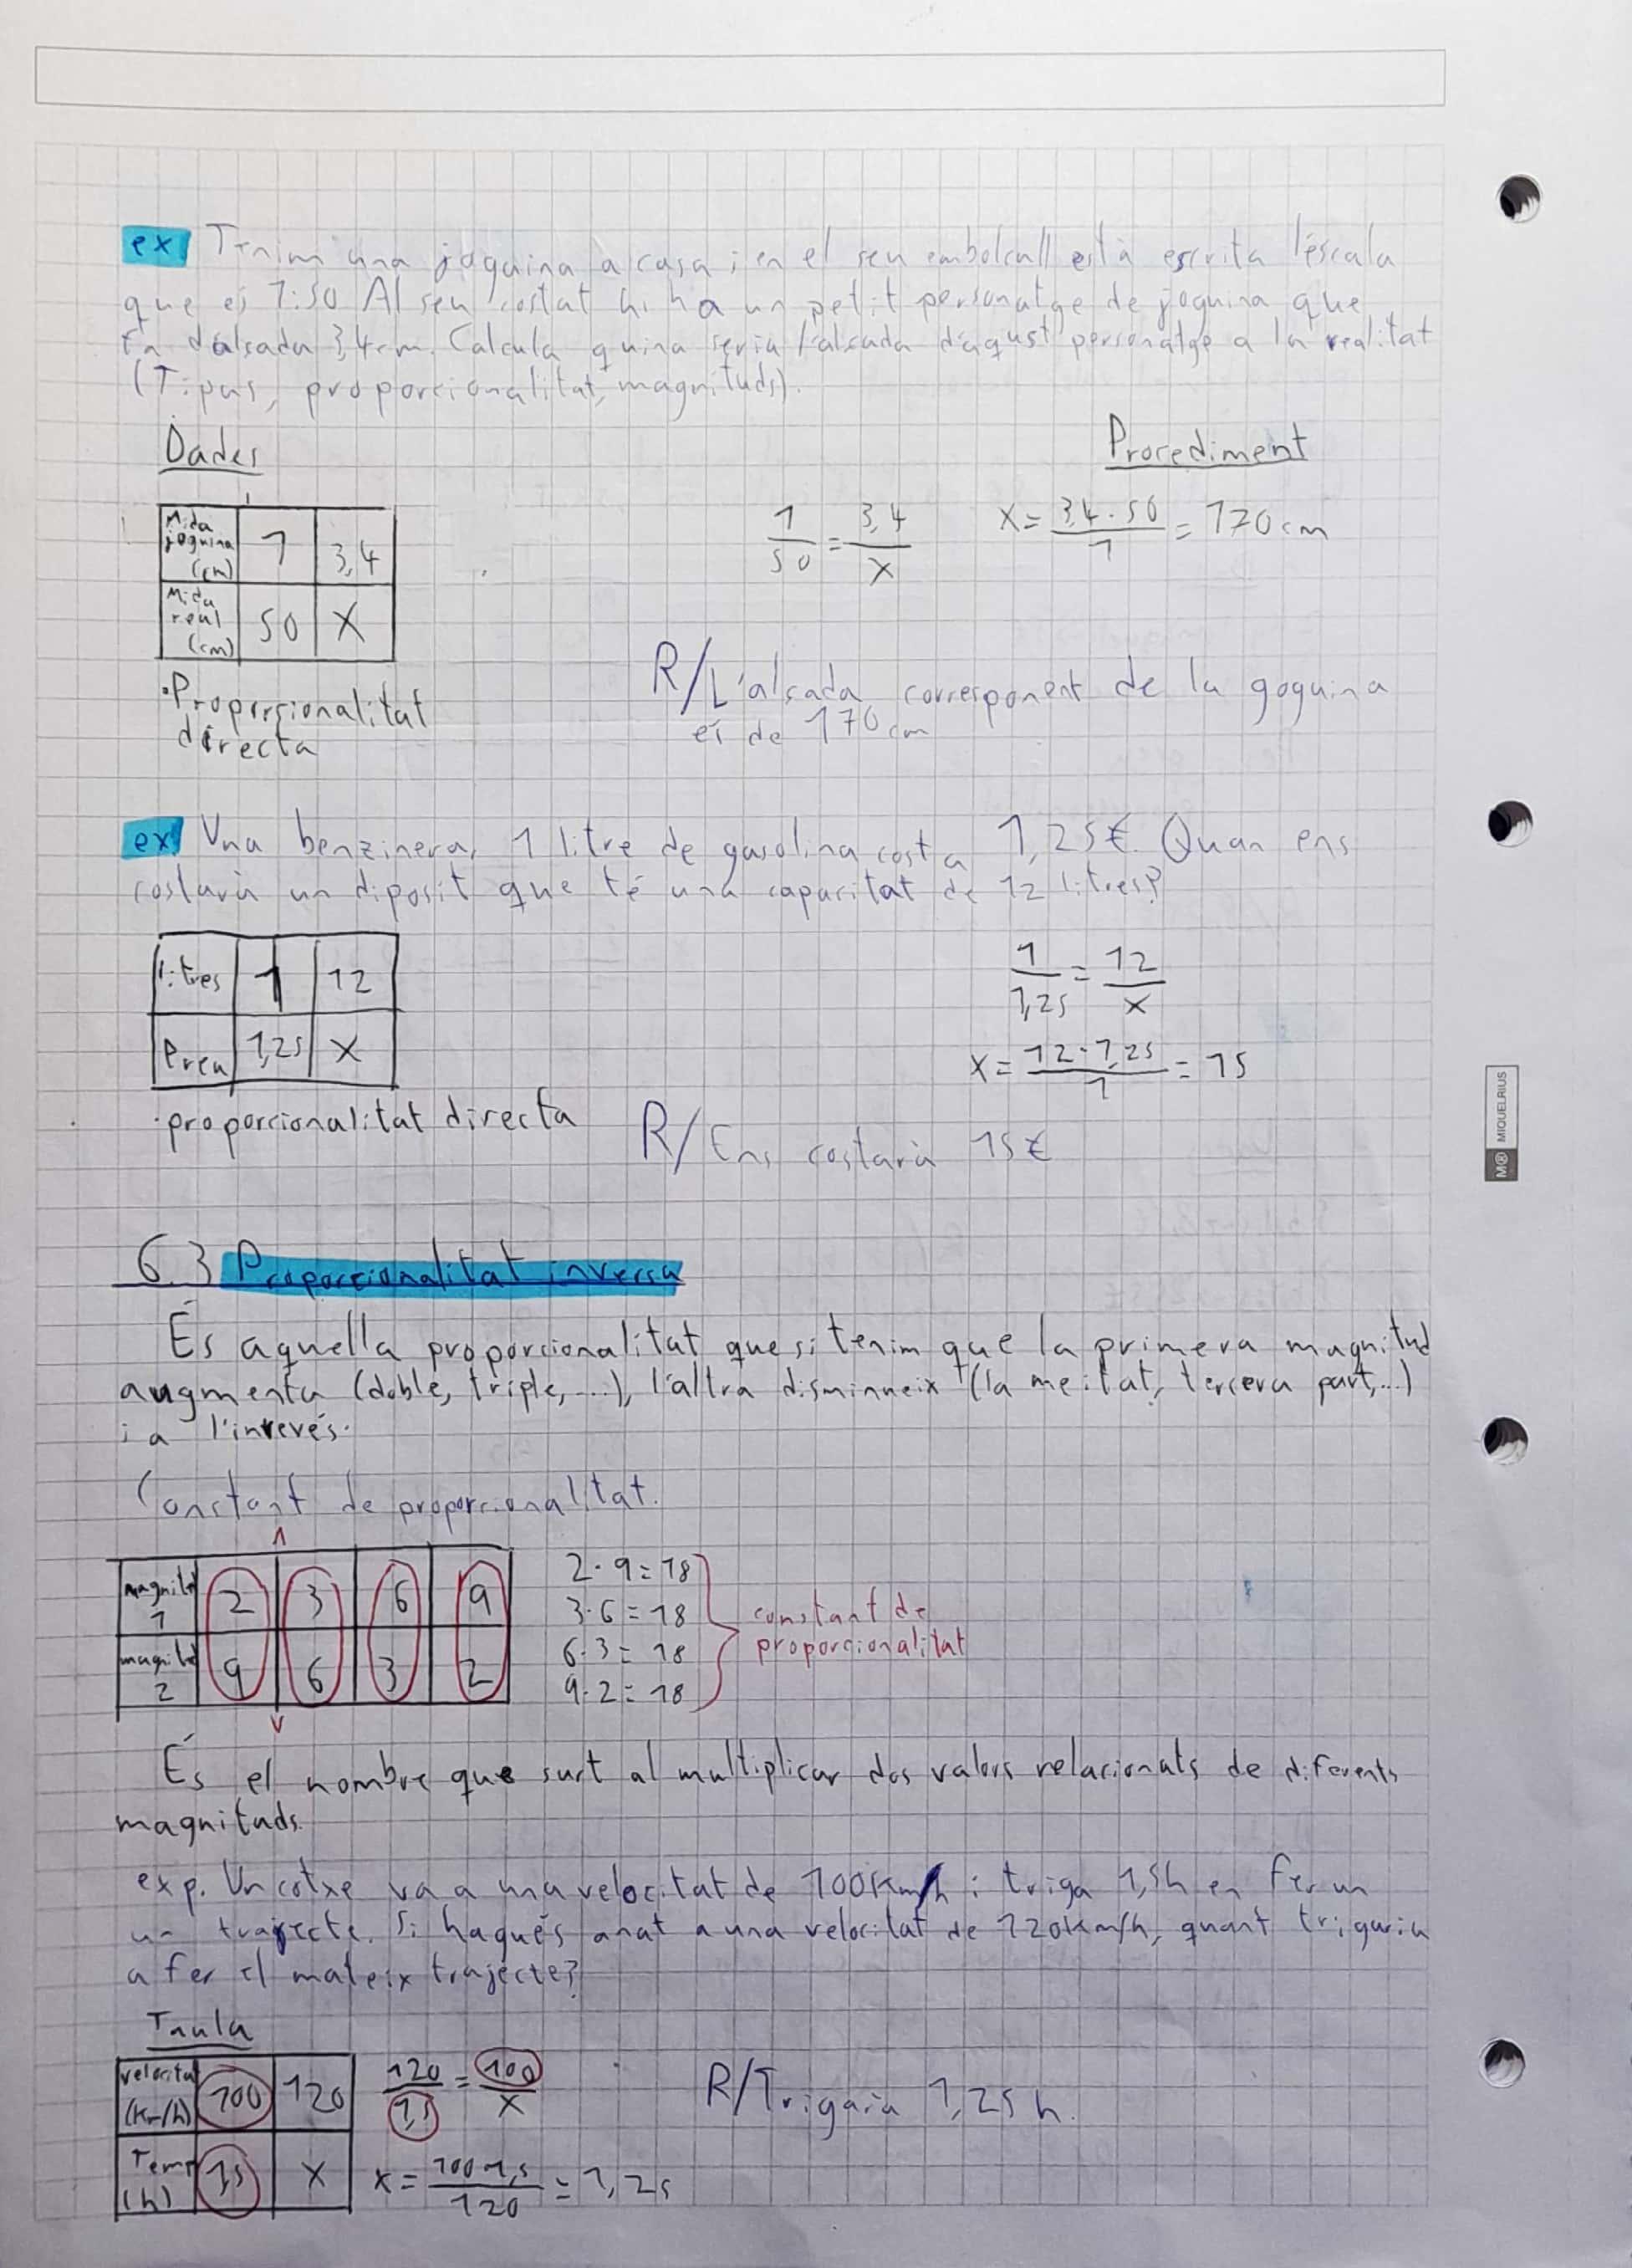 ex Tenim una joguina a casa i en el seu embolcall està escrita l'éscala
que es 1:50 Al seu costat hi ha un petit personatge de joguina que
fa d'alsada 3,4cm. Calcula quina seria l'alsada d'aqust personatge a la realitat
(Tipus, proporcionalitat, magnituds).
Dades
Procediment
Mida joguina (cm) 1 3,4
Mida real (cm) 50 X
1/50 = 3,4/X
X = 3,4 · 50/1 = 170 cm
· Proporcionalitat
directa
R/ L'alsada corresponent de la goguina
és de 170 cm
ex Una benzinera, 1 litre de gasolina costa 1,25€. Quan ens
costarà un diposit que té una capacitat de 12 litres?
litres 1 12
Preu 1,25 X
1/1,25 = 12/X
X = 12 · 1,25/1 = 15
· proporcionalitat directa
R/ Ens costarà 15€
6.3 Proporcionalitat inversa
És aquella proporcionalitat que si tenim que la primera magnitud
augmenta (doble, triple, ...), l'altra disminueix (la meitat, tercera part,...)
i a l'inrevés.
Constant de proporcionalitat.
magnitd 1 2 3 6 9
magnitd 2 9 6 3 2
2 · 9 = 18
3 · 6 = 18
6 · 3 = 18
9 · 2 = 18
constant de
proporcionalitat
És el nombre que surt al multiplicar dos valors relacionats de diferents
magnituds.
exp. Un cotxe va a una velocitat de 100Km/h i triga 1,5h en fer un
un trajecte. Si hagués anat a una velocitat de 120Km/h, quant trigaria
a fer el mateix trajecte?
Taula
velocitat (Km/h) 100 120
Temp (h) 1,5 X
120/1,5 = 100/X
X = 100 · 1,5/120 = 1,25
R/ Trigaria 1,25 h.
M® MIQUELRIUS